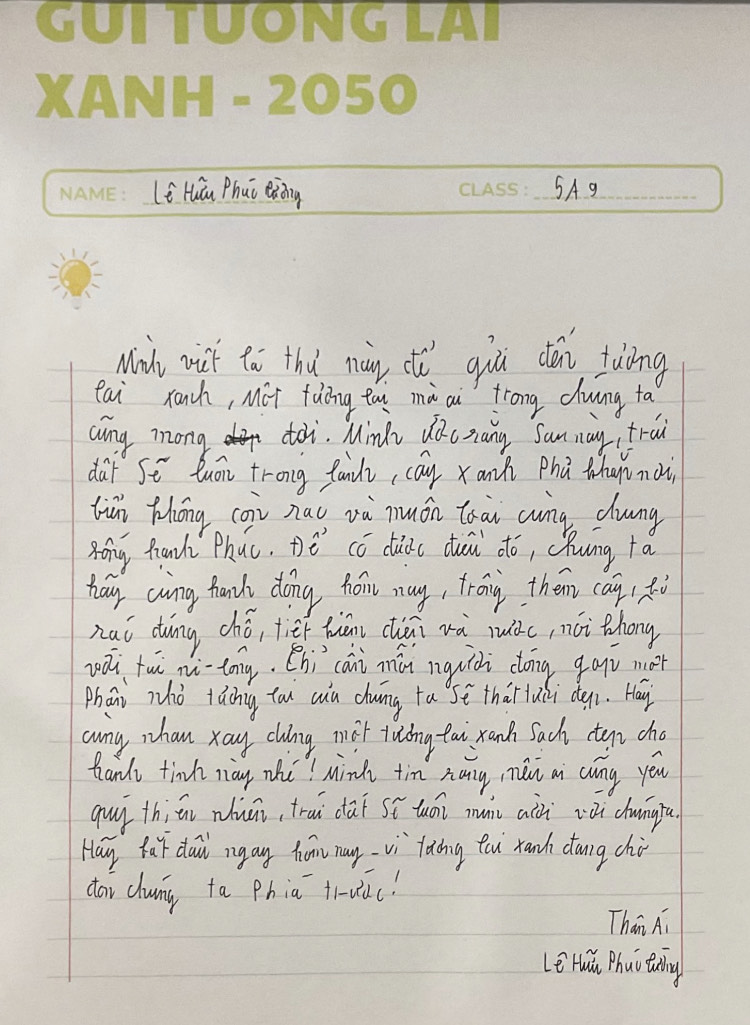 GỬI TƯƠNG LAI
XANH - 2050
NAME: Lê Hữu Phúc Cường CLASS: 5A9
Mình viết lá thư này để gửi đến tương
lai xanh, một tương lai mà ai trong chúng ta
cũng mong đợi. Mình ước rằng sau này, trái
đất sẽ luôn trong lành, cây xanh phủ khắp nơi,
biển không còn rác và muôn loài cùng chung
sống hạnh phúc. Để có được điều đó, chúng ta
hãy cùng hành động hôm nay, trồng thêm cây, bỏ
rác đúng chỗ, tiết kiệm điện và nước, nói không
với túi ni-lông. Chỉ cần mỗi người đóng góp một
phần nhỏ tương lai của chúng ta sẽ thật tươi đẹp. Hãy
cùng nhau xây dựng một tương lai xanh sạch đẹp cho
hành tinh này nhé! Mình tin rằng, nếu ai cũng yêu
quý thiên nhiên, trái đất sẽ luôn mỉm cười với chúng ta.
Hãy bắt đầu ngay hôm nay - vì tương lai xanh đang chờ
đón chúng ta phía trước!
Thân Ái
Lê Hữu Phúc Cường